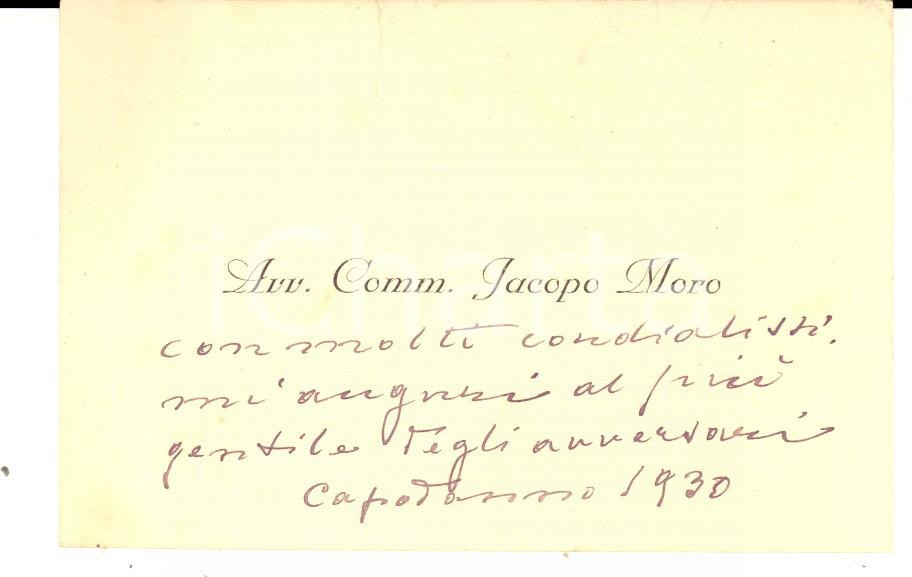 Avv. Comm. Jacopo Moro
con molti cordialissi.
mi auguri al più
gentile degli avversari
Capodanno 1930
iCharta